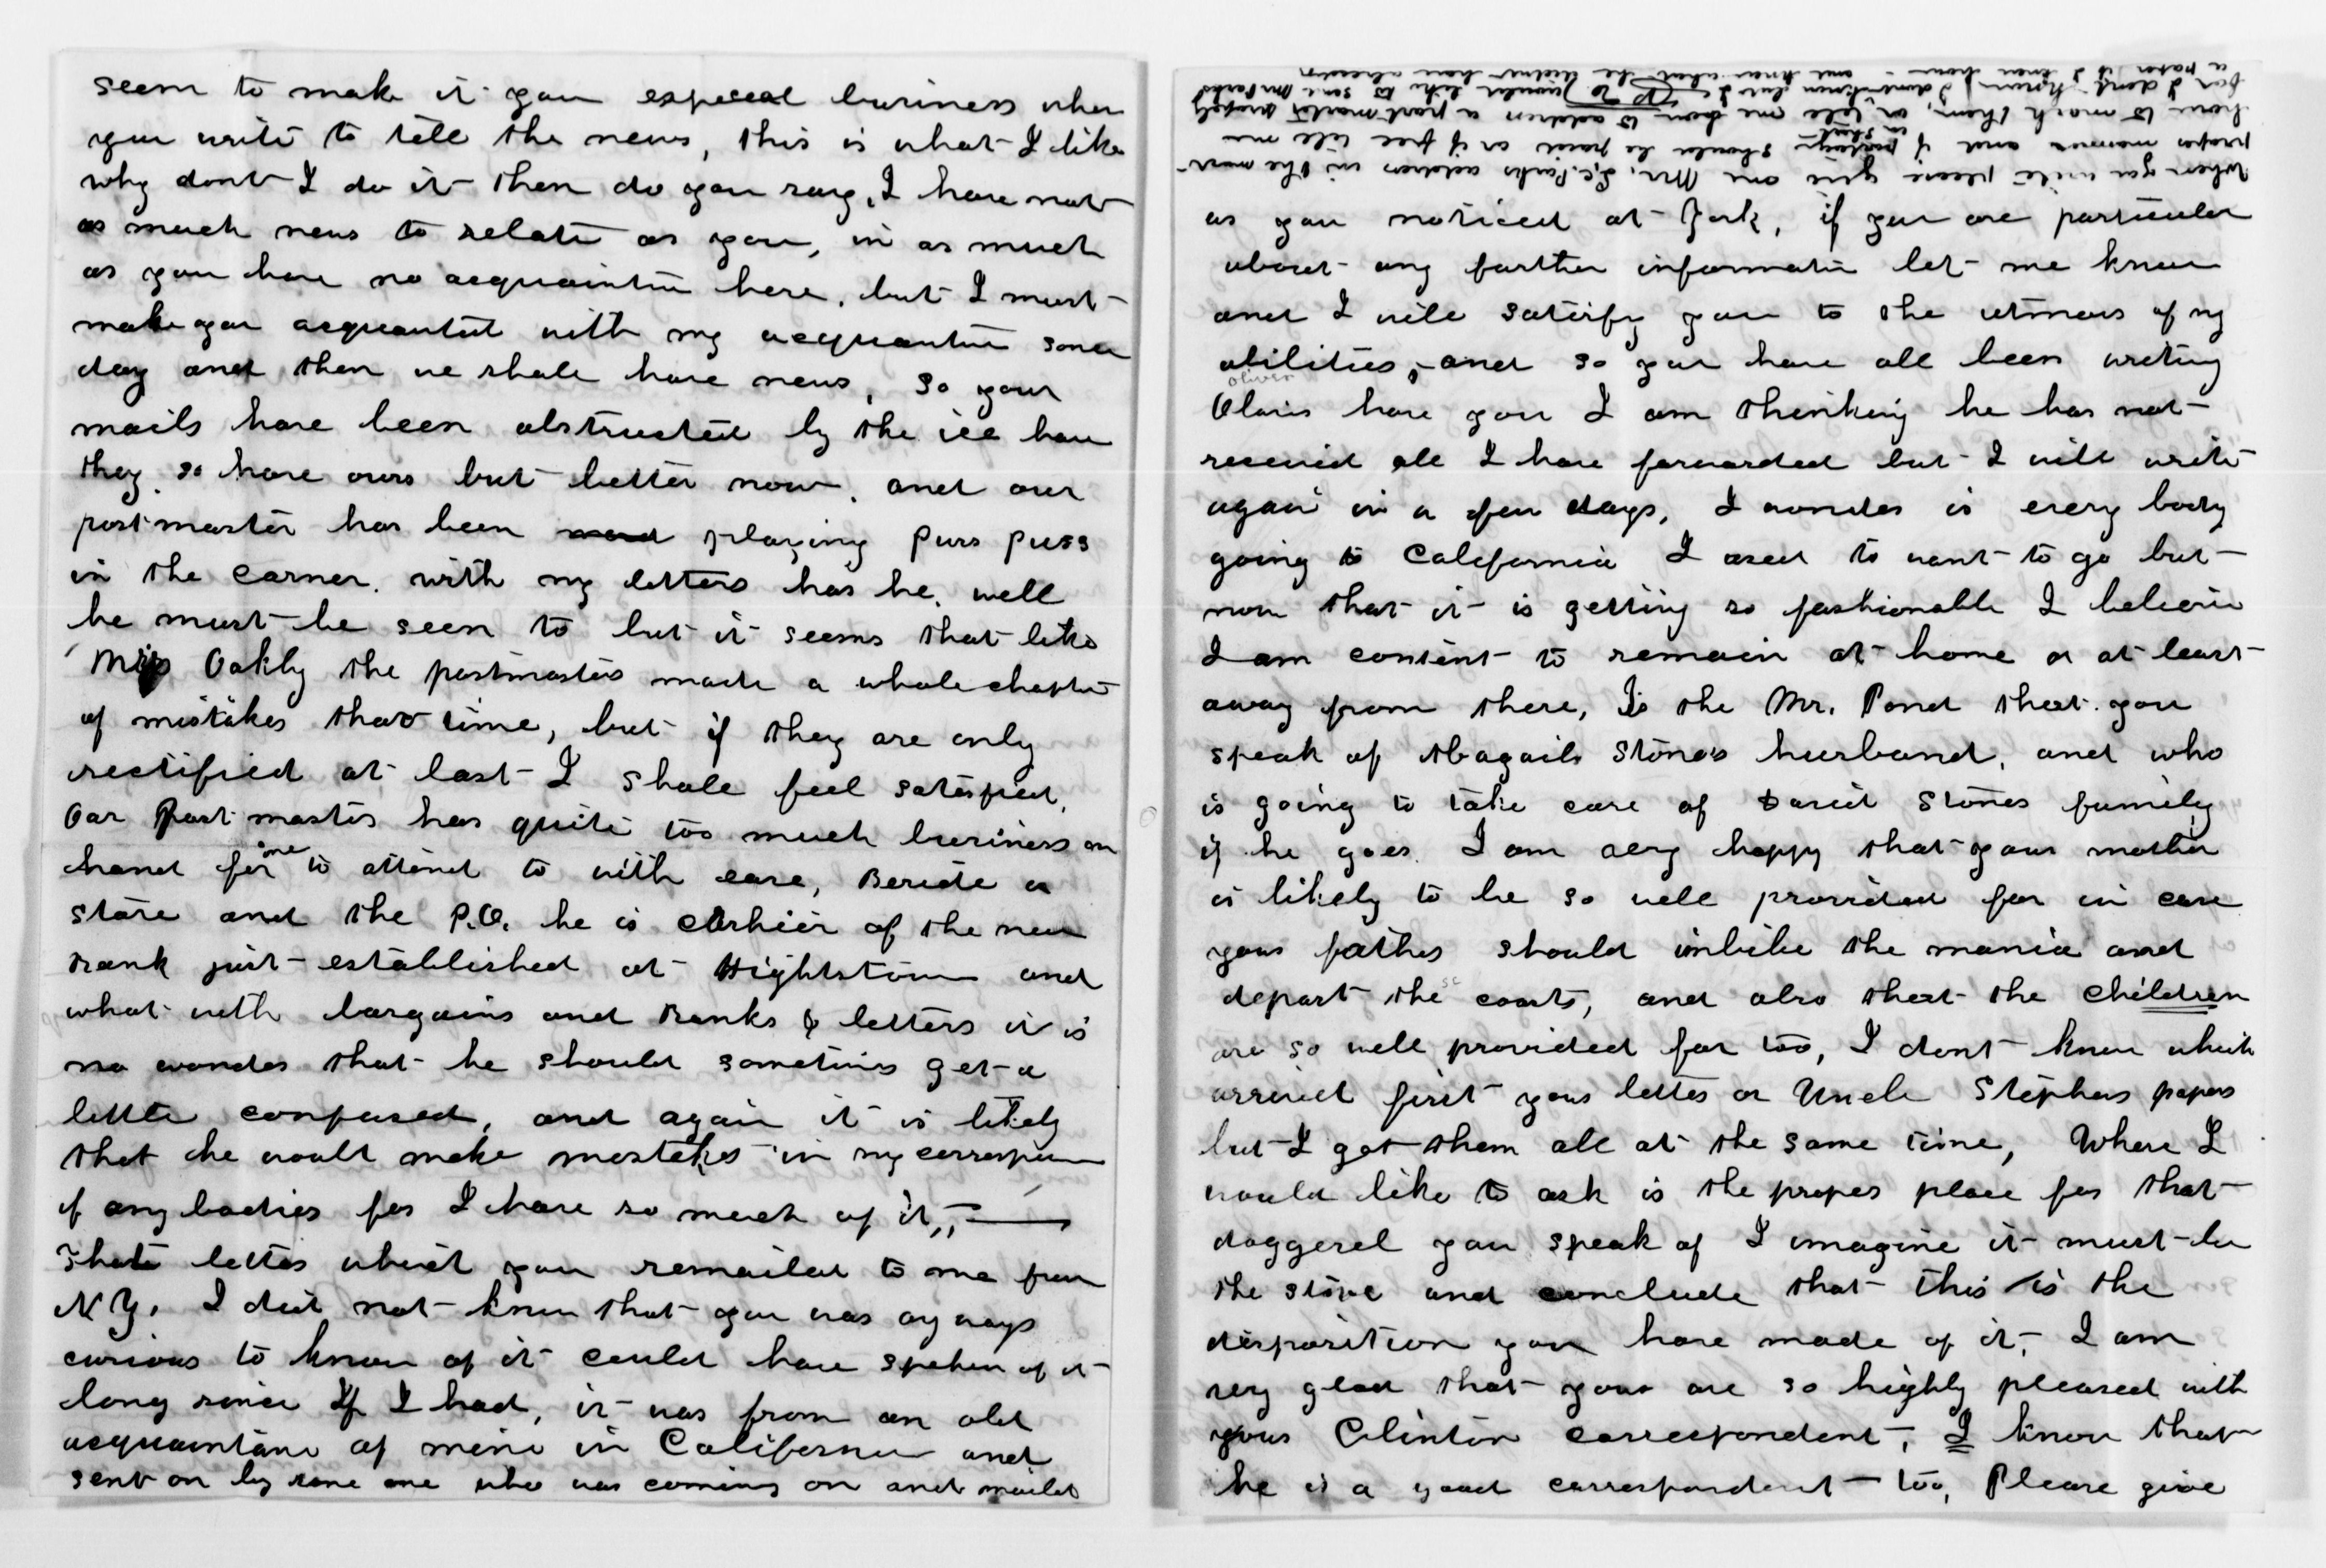 seem to make it your especial business when
you write to tell the news, this is what I like
why dont I do it then do you say, I have not
as much news to relate as you, in as much
as you have no acquaintin here, but I must
make you acquanted with my acquantin some
day and then we shall have news, so your
mails have been obstructed by the ice have
they, so have ours but better now, and our
postmaster has been playing Puss puss
in the corner with my letters has he, well
he must be seen to but it seems that like
Miss Oakly the postmasters made a whole chapter
of mistakes that time, but if they are only
rectified at last I shall feel satisfied,
Our Post master has quite too much business on
hand for one to attend to with care, Beside a
store and the P.O. he is Cashier of the new
Bank just established at Hightstown and
what with bargains and Banks & letters it is
no wonder that he should sometimes get a
little confused, and again it is likely
that he would make mistakes in my
if any bodies for I have so much of it,, —
That letter which you remailed to me from
N.Y. I did not know that you was any ways
curious to know of it could have spoken of it
long since If I had, it was from an old
acquaintance of mine in California and
sent on by some one who was coming on and mailed
When you write please give me Mr. L.C. Parks address in the most
proper manner and if postage should be paid or if free tell me
in short
how to mark them, or tell me how to address a post master
for I dont know I would like to send Mr Parks
a paper if I knew how
as you noticed at York, if you are particular
about any further informatin let me know
and I will satisfy you to the utmost of my
abilities, and so you have all been writing
Oliver
Olivis have you I am thinking he has not
received all I have forwarded but I will write
again in a few days, I wonder is every body
going to California I used to want to go but
now that it is getting so fashionable I believe
I am content to remain at home or at least
away from there, Is the Mr. Pond that you
speak of Abagails Stones husband, and who
is going to take care of David Stones family
if he goes. I am very happy that your mother
is likely to be so well provided for in case
your father should imbibe the mania and
depart the coasts, and also that the children
are so well provided for too, I dont know which
arrived first your letter or Uncle Stephens papers
but I got them all at the same time, Where I
would like to ask is the proper place for that
doggerel you speak of I imagine it must be
the stove and conclude that this is the
disposition you have made of it, I am
very glad that your are so highly pleased with
your Clinton correspondent, I know that
he is a good correspondent too, Please give